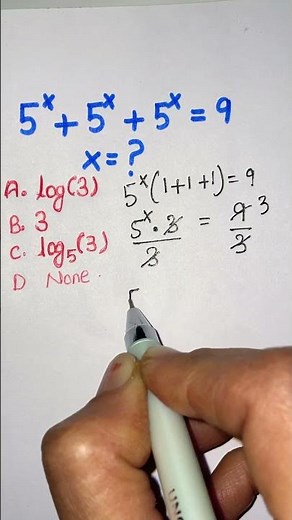 5^x + 5^x + 5^x = 9
x = ?
A. log(3)
B. 3
C. log₅(3)
D None.
5^x (1+1+1) = 9
5^x · 3 / 3 = 9 3 / 3
5